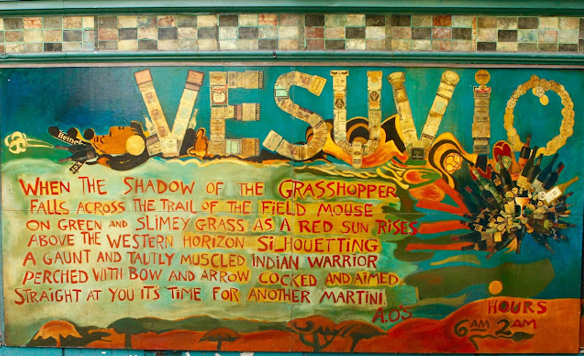 VESUVIO
Heineken
WHEN THE SHADOW OF THE GRASSHOPPER
FALLS ACROSS THE TRAIL OF THE FIELD MOUSE
ON GREEN AND SLIMEY GRASS AS A RED SUN RISES
ABOVE THE WESTERN HORIZON SILHOUETTING
A GAUNT AND TAUTLY MUSCLED INDIAN WARRIOR
PERCHED WITH BOW AND ARROW COCKED AND AIMED
STRAIGHT AT YOU IT'S TIME FOR ANOTHER MARTINI.
HOURS
6AM 2AM